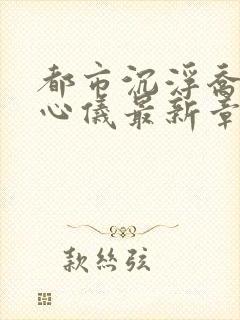 都市沉浮乔
心仪最新章
款丝弦